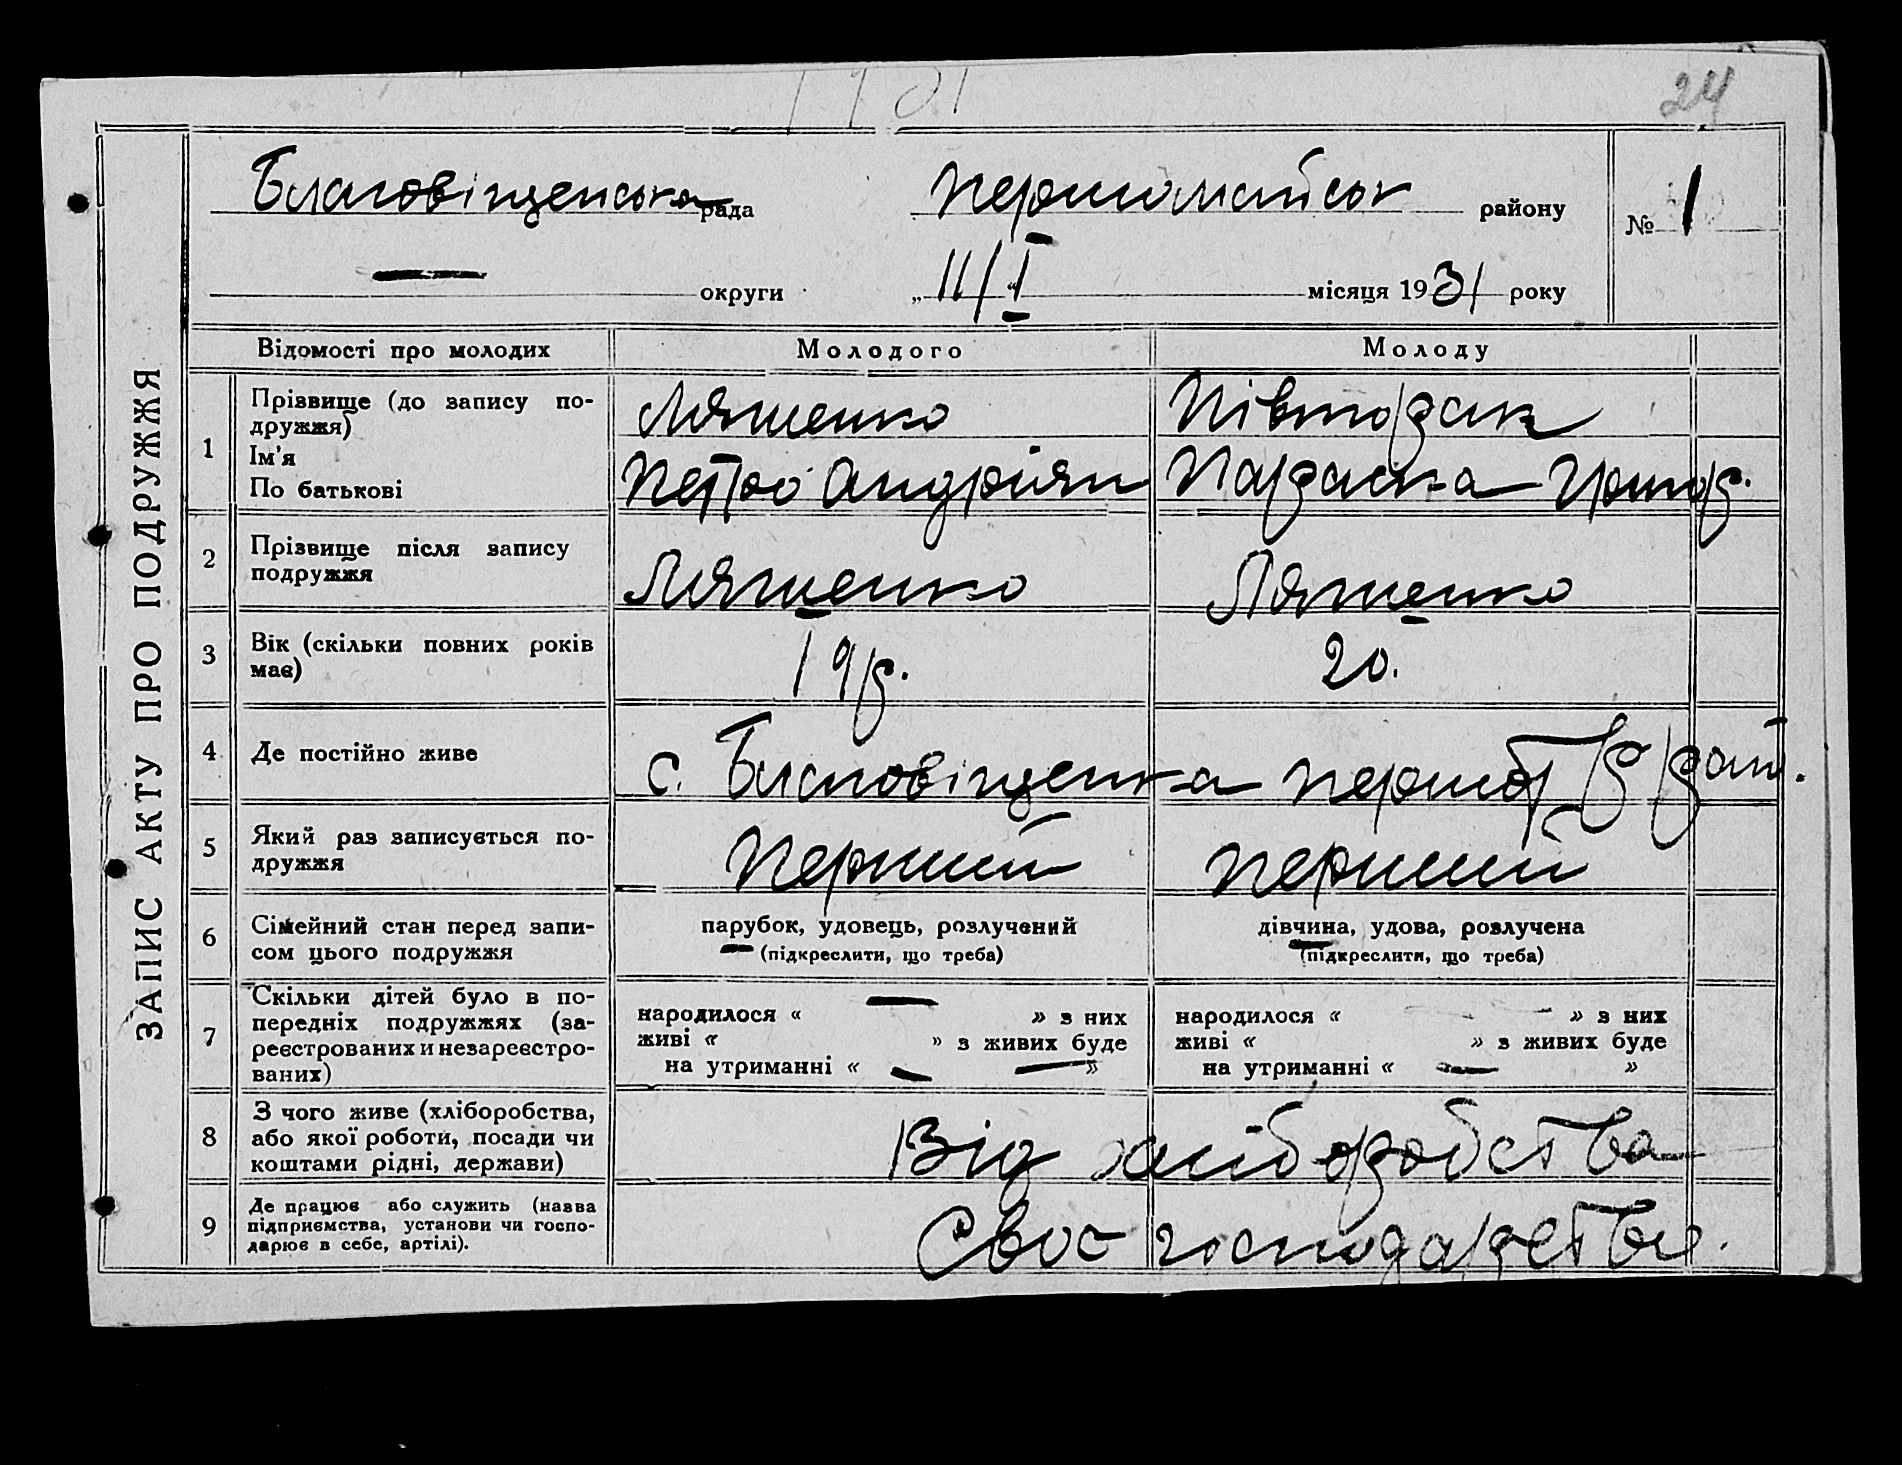 1931
24
ЗАПИС АКТУ ПРО ПОДРУЖЖЯ
Благовіщенська рада Першомайськ району № 1
— округи „ 11/I “ місяця 1931 року
Відомості про молодих Молодого Молоду
1 Прізвище (до запису по-
дружжя) Ляшенко Півторак
Ім'я
По батькові Петро Андріян Параска Григор.
2 Прізвище після запису
подружжя Ляшенко Ляшенко
3 Вік (скільки повних років
має) 19 р. 20.
4 Де постійно живе с. Благовіщенка
5 Який раз записується по-
дружжя Перший перший
6 Сімейний стан перед запи-
сом цього подружжя
парубок, удовець, розлучений
(підкреслити, що треба)
дівчина, удова, розлучена
(підкреслити, що треба)
7 Скільки дітей було в по-
передніх подружжях (за-
реєстрованих и незареєстро-
ваних)
народилося « — » з них
живі « » з живих буде
на утриманні « — »
народилося « — » з них
живі « » з живих буде
на утриманні « — »
8 З чого живе (хліборобства,
або якої роботи, посади чи
коштами рідні, держави)
Від хліборобства
9 Де працює або служить (назва
підприємства, установи чи госпо-
дарює в себе, артілі).
Своє господарство.